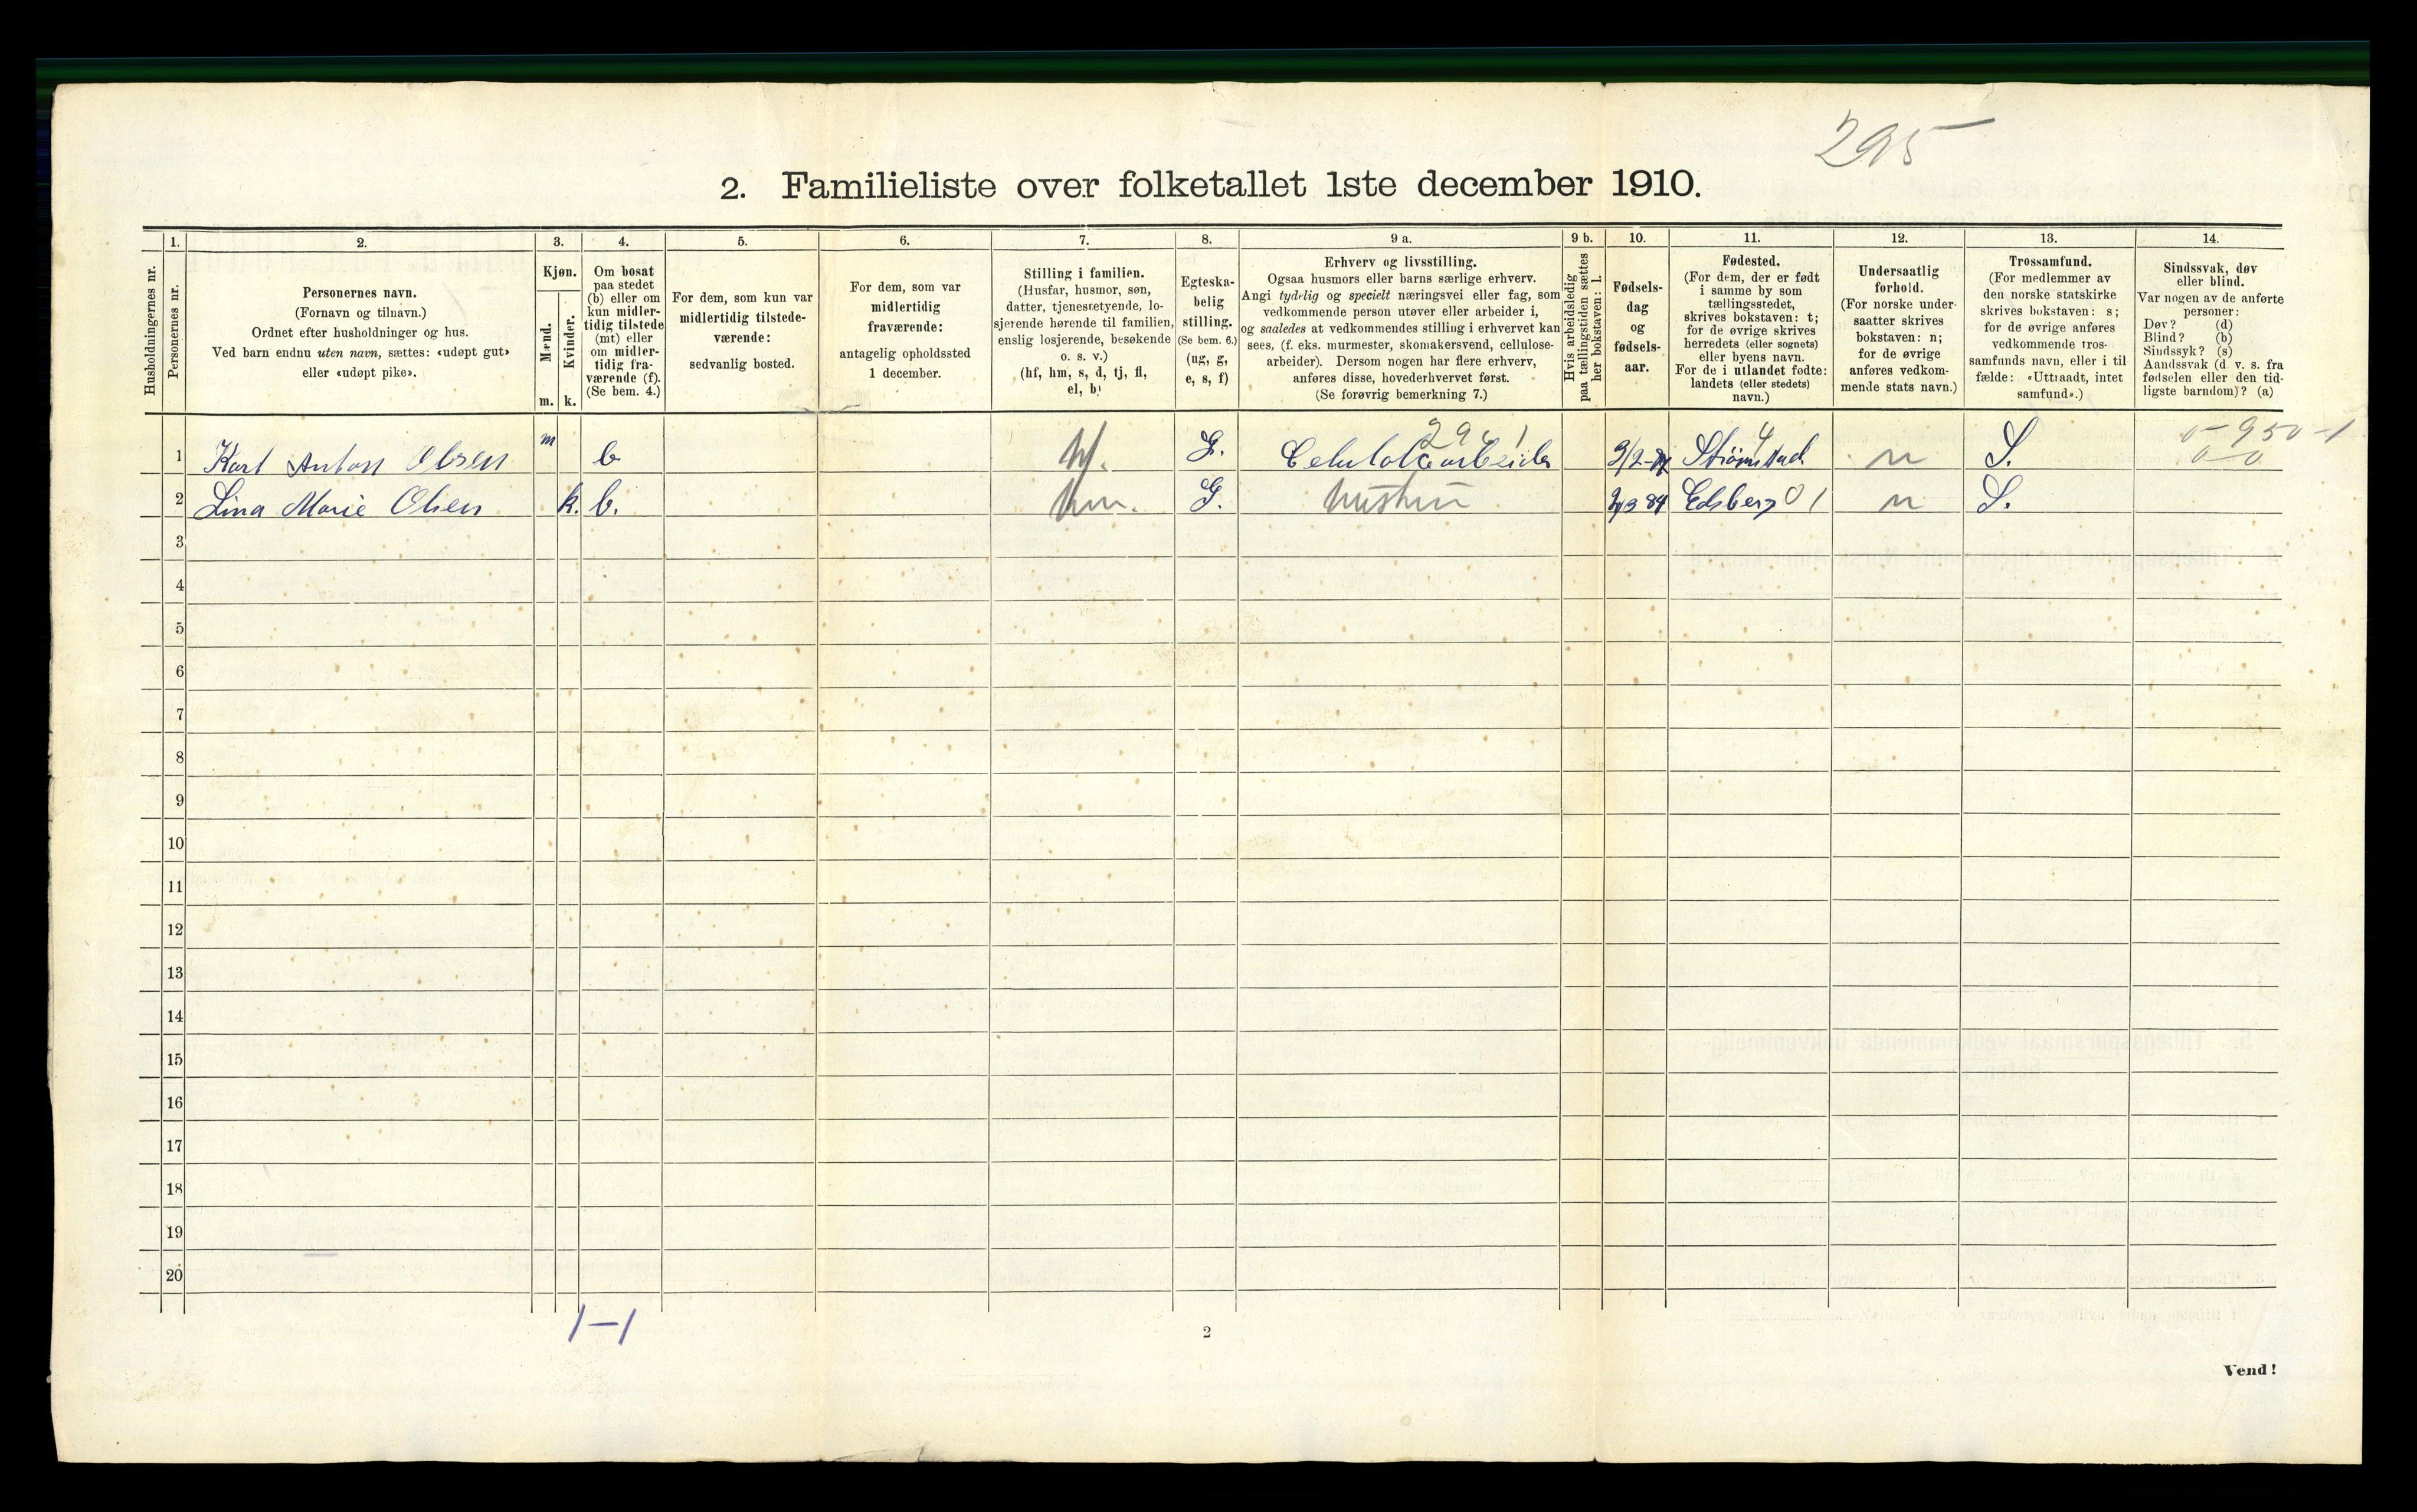 295
2. Familieliste over folketallet 1ste december 1910.
Husholdningernes nr.
1.
Personernes nr.
2.
Personernes navn.
(Fornavn og tilnavn.)
Ordnet efter husholdninger og hus.
Ved barn endnu uten navn, sættes: «udøpt gut»
eller «udøpt pike».
3.
Kjøn.
Mænd.
Kvinder.
m. k.
4.
Om bosat
paa stedet
(b) eller om
kun midler-
tidig tilstede
(mt) eller
om midler-
tidig fra-
værende (f).
(Se bem. 4.)
5.
For dem, som kun var
midlertidig tilstede-
værende:
sedvanlig bosted.
6.
For dem, som var
midlertidig
fraværende:
antagelig opholdssted
1 december.
7.
Stilling i familien.
(Husfar, husmor, søn,
datter, tjenestetyende, lo-
sjerende hørende til familien,
enslig losjerende, besøkende
o. s. v.)
(hf, hm, s, d, tj, fl,
el, b)
8.
Egteska-
belig
stilling.
(Se bem. 6.)
(ug, g,
e, s, f)
9 a.
Erhverv og livsstilling.
Ogsaa husmors eller barns særlige erhverv.
Angi tydelig og specielt næringsvei eller fag, som
vedkommende person utøver eller arbeider i,
og saaledes at vedkommendes stilling i erhvervet kan
sees, (f. eks. murmester, skomakersvend, cellulose-
arbeider). Dersom nogen har flere erhverv,
anføres disse, hovederhvervet først.
(Se forøvrig bemerkning 7.)
9 b.
Hvis arbeidsledig
paa tællingstiden sættes
her bokstaven: l.
10.
Fødsels-
dag
og
fødsels-
aar.
11.
Fødested.
(For dem, der er født
i samme by som
tællingsstedet,
skrives bokstaven: t;
for de øvrige skrives
herredets (eller sognets)
eller byens navn.
For de i utlandet fødte:
landets (eller stedets)
navn.)
12.
Undersaatlig
forhold.
(For norske under-
saatter skrives
bokstaven: n;
for de øvrige
anføres vedkom-
mende stats navn.)
13.
Trossamfund.
(For medlemmer av
den norske statskirke
skrives bokstaven: s;
for de øvrige anføres
vedkommende tros-
samfunds navn, eller i til
fælde: «Uttraadt, intet
samfund».)
14.
Sindssvak, døv
eller blind.
Var nogen av de anførte
personer:
Døv? (d)
Blind? (b)
Sindssyk? (s)
Aandssvak (d. v. s. fra
fødselen eller den tid-
ligste barndom)? (a)
1 Karl Anton Olsen m b hf. G. Celulosearbeider Strømstad n S.
2 Lina Marie Olsen k. b. hm. G. hustru Edsberg 01 n S.
3
4
5
6
7
8
9
10
11
12
13
14
15
16
17
18
19
20
1-1
2
Vend!